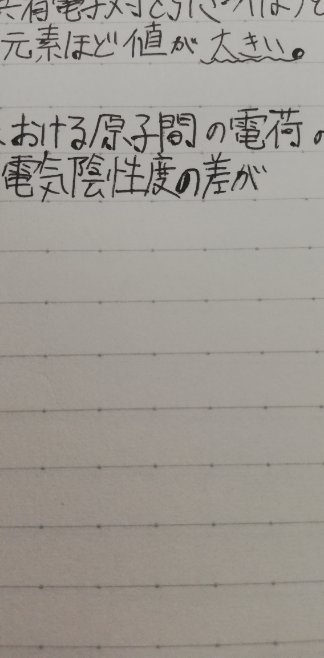 共有電子対を引きつける
元素ほど値が大きい。
おける原子間の電荷の
電気陰性度の差が